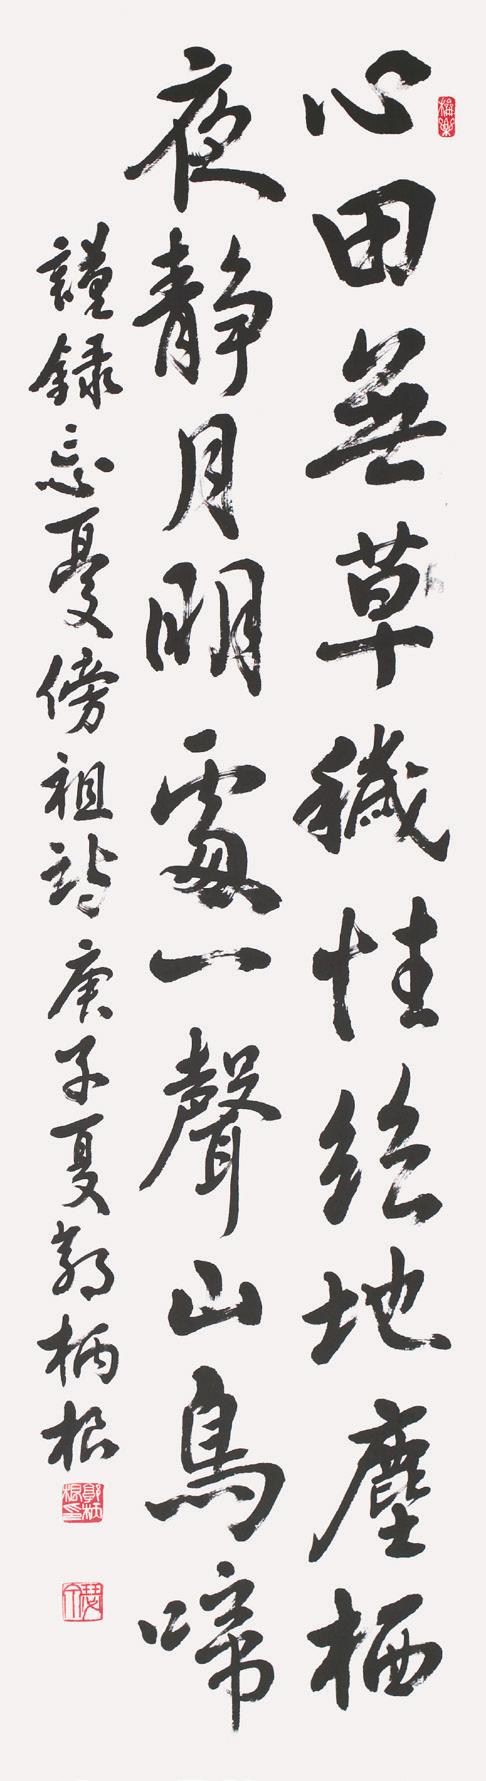 心田無草穢性絕地塵栖
夜靜月明處一聲山鳥啼
謹錄忘憂傍祖詩庚子夏郭柄根